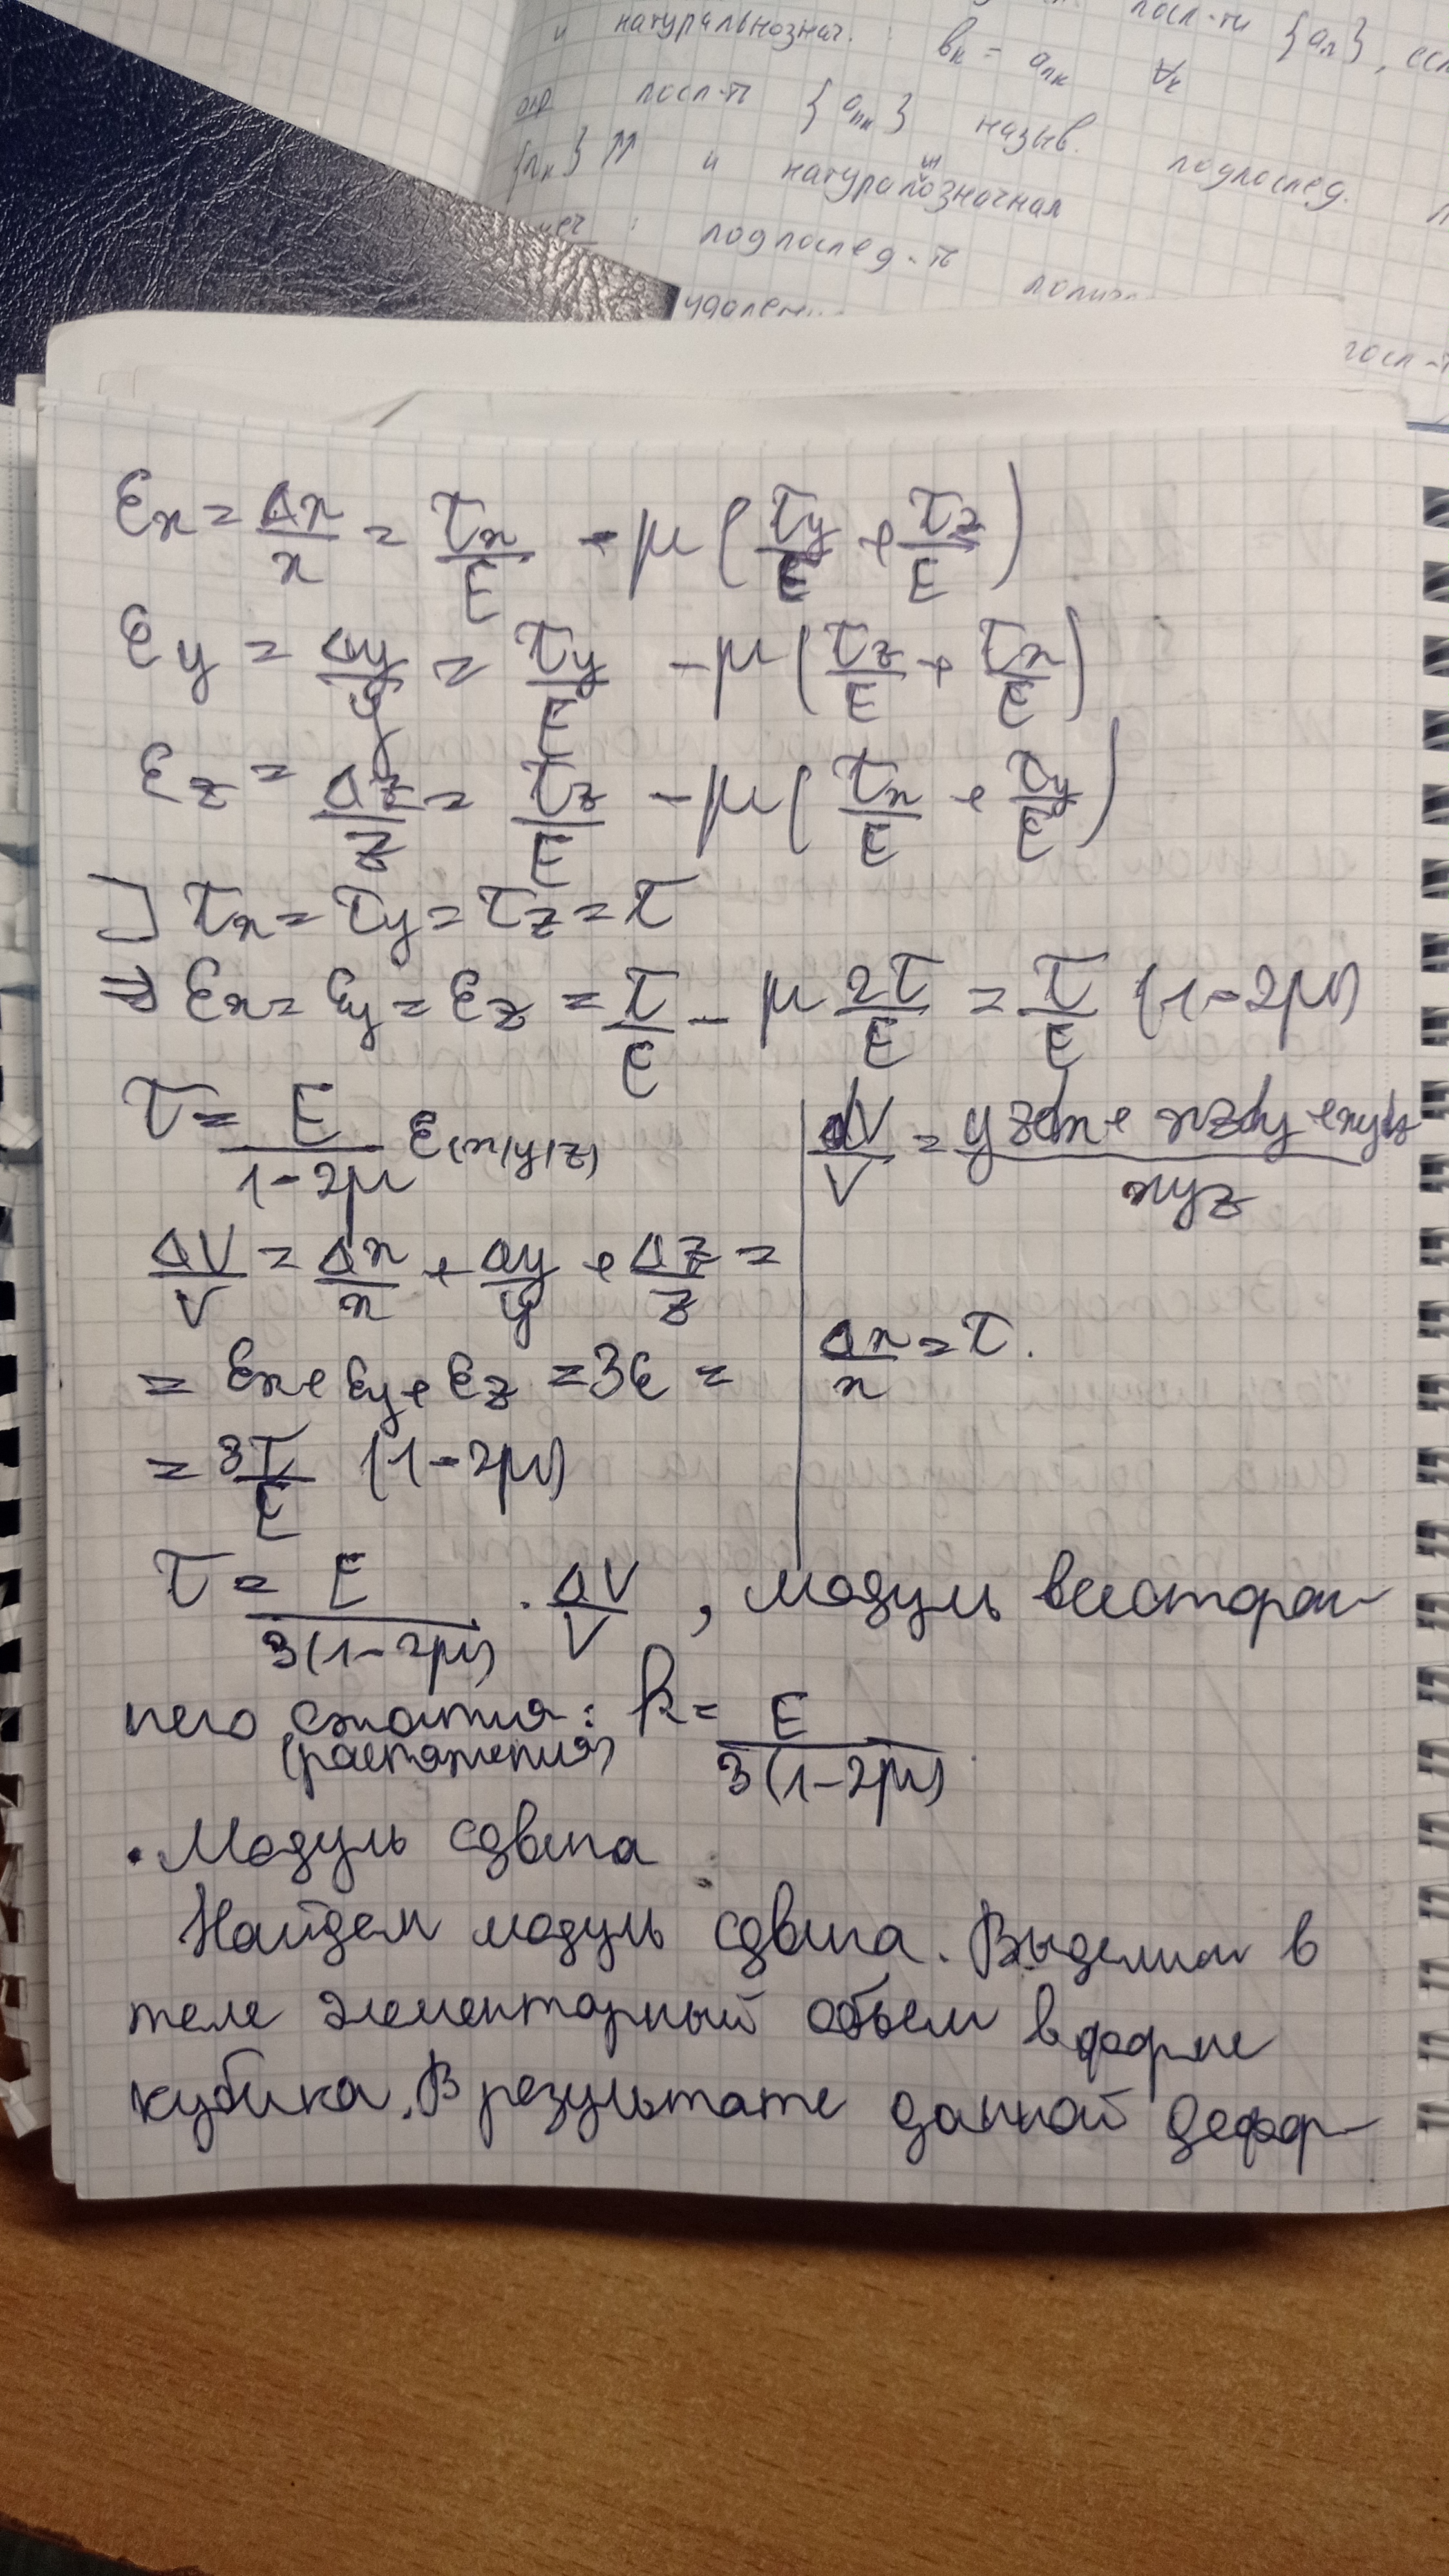 посл-ти {aₙ}, есл
и натуральнознач. : bₖ = aₙₖ ∀k
опр посл-ть {aₙₖ} назыв. подпослед.
{nₖ} ⇈ и натуральнозначная
подпослед-ть
удален
посл-т
εx = Δx/x = τx/E - μ(τy/E + τz/E)
εy = Δy/y = τy/E - μ(τz/E + τx/E)
εz = Δz/z = τz/E - μ(τx/E + τy/E)
] τx = τy = τz = τ
⇒ εx = εy = εz = τ/E - μ 2τ/E = τ/E (1-2μ)
τ = E/(1-2μ) ε(x/y/z)
ΔV/V = Δx/x + Δy/y + Δz/z =
= εx + εy + εz = 3ε =
= 3τ/E (1-2μ)
dV/V = (yzdx + xzdy + xydz)/xyz
Δx/x = τ.
τ = E/(3(1-2μ)) · ΔV/V , модуль всесторон-
него сжатия: k = E/(3(1-2μ))
(растяжения)
• Модуль сдвига
Найдем модуль сдвига. Выделим в
теле элементарный объем в форме
кубика. В результате данной дефор-